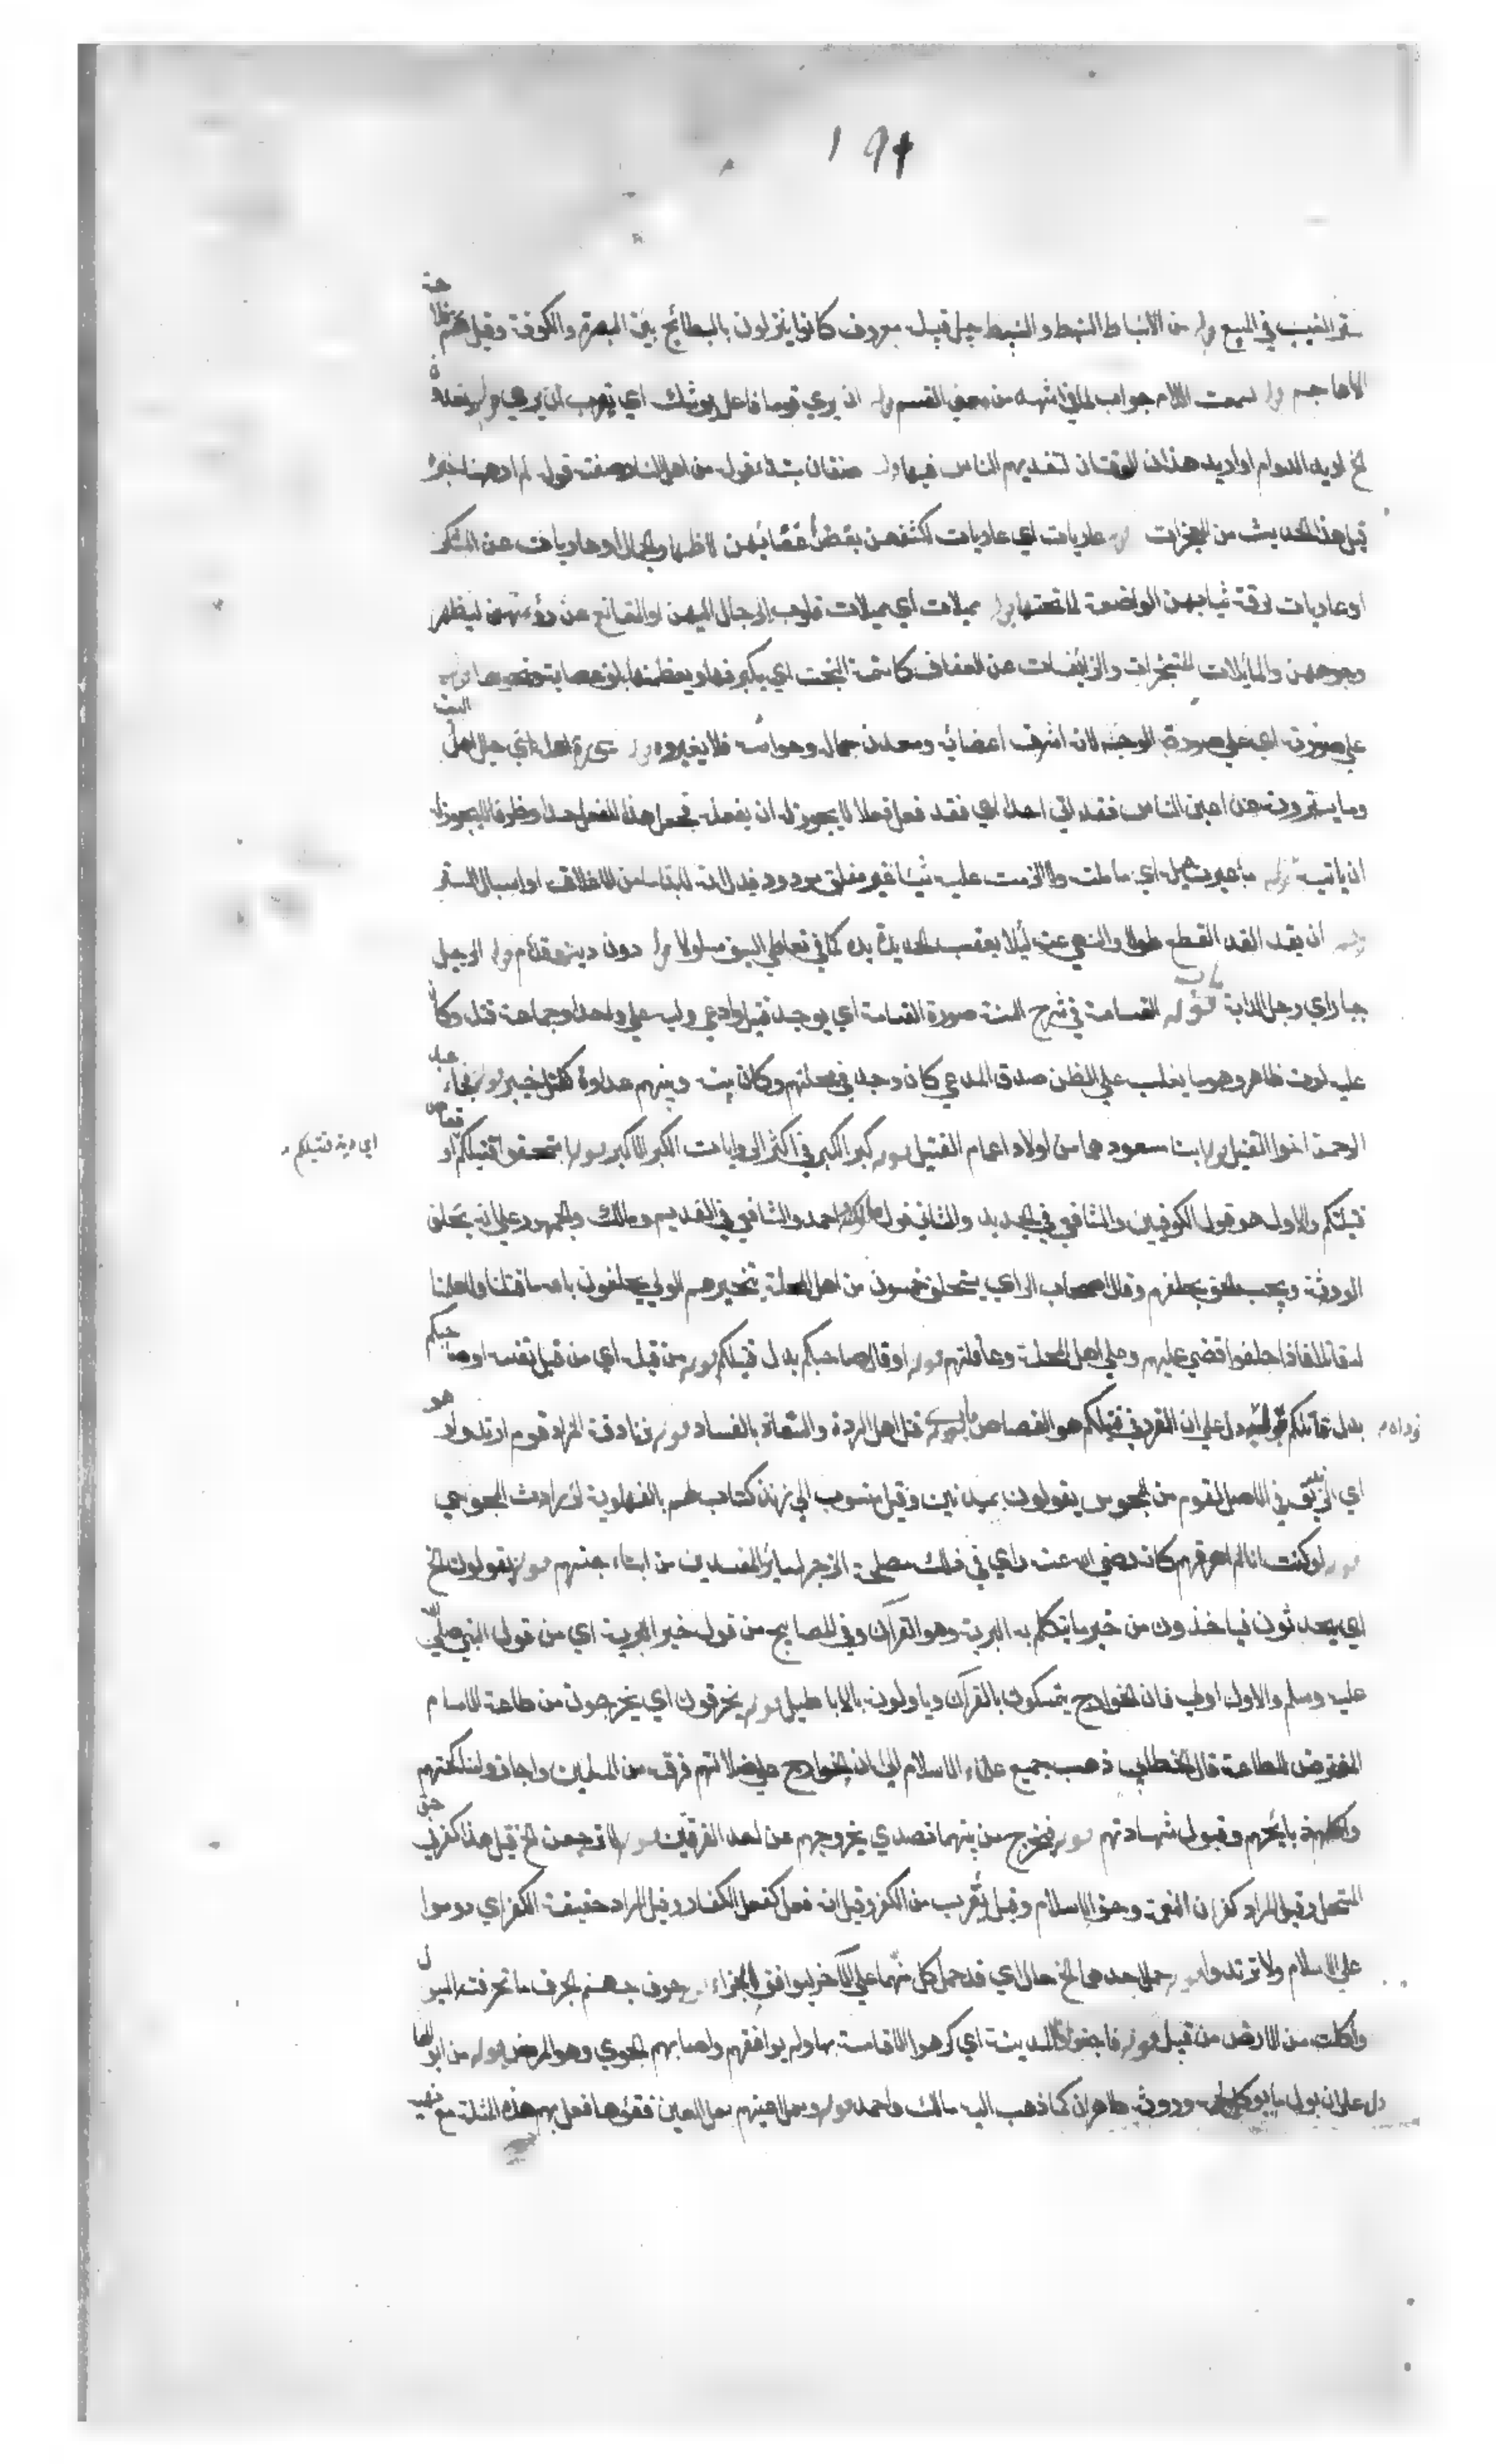 ١٩٤
في البيع قوله من الانباط النبط والنبيط جيل معروف كانوا ينزلون بالبطائح بين البصرة والكوفة وقيل هم
الاعاجم قوله سمعت اللام جواب لما في اشهد من معنى القسم قوله ان يري قوما فاعل يوشك اي يقرب ان يري قوله
الخ اريد به الدوام او اريد هذان الوقتان لتعذيبهم الناس فيها قوله صنفان مبتدا قوله من اهل النار صفته قوله لم ارهما خبره
قيل هذا الحديث من المعجزات قوله عاريات اي عاريات لكشفهن بعض اعضائهن لاظهار الجمال او عاريات عن الشكر
او عاريات لرقة ثيابهن الواضعة لما تحتها قوله مميلات اي مميلات قلوب الرجال اليهن او المقانع عن رؤسهن ليظهر
وجوههن والمايلات المتبخترات والزائغات عن العفاف كاسنمة البخت اي يكبرنها ويعظمنها بلف عصابة ونحوها قوله
علي صورته اي علي صورة الوجه لانه اشرف اعضائه ومعدن جماله وحواسه فلا يغيروه قوله عورة اهله اي خلل اهل البيت
وما يسترونه عن اعين الناس فقد اتي احدا اي فقد فعل فعلا لا يجوز له ان يفعله فجعل هذا الفعل حدا وظرفا لا يجوز له
ان ياتيه قوله ما عيرت عليه اي ما ملت وما الزمت عليه شيئا غير مغلق مردود فيه لانه لا بد من الاغلاق او اسبال الستر
قوله ان يقد القد القطع طولا والنهي عنه ليلا يعقب الحديدة يده كما في تعاطي السيف مسلولا قوله دون دينه قدام قوله الرجل
جبار اي رجل الدابة باب قوله القسامة في شرح السنة صورة القسامة اي يوجد قتيل وادعي وليه علي واحد او جماعة قتله وكان
عليه لوث ظاهر وهو ما يغلب علي الظن صدق المدعي كان وجد في محلتهم وكان بينه وبينهم عداوة كقتيل خيبر قوله فجاء عبد
الرحمن اخو القتيل قوله ابنا مسعود هما من اولاد اعمام القتيل قوله كبر الكبر في اكثر الروايات الكبر الاكبر قوله استحقوا قتيلكم او
اي دية قتيلكم
قتيلكم والاول هو قول الكوفيين والشافعي في الجديد والثاني قول مالك احمد والشافعي في القديم ومالك والجمهور علي انه يحلف
الورثة ويجب الحق بحلفهم وقال اصحاب الراي يستحلف خمسون من اهل المحلة يتخيرهم الولي يحلفون بالله ما قتلناه ولا علمنا
له قاتلا فاذا حلفوا قضي عليهم وعلي اهل المحلة وعاقلتهم قوله او قال صاحبكم بدل قتيلكم قوله من قبله اي من قبل نفسه او صاحبكم
بدل قاتلكم دل علي ان القود في قتيلكم هو القصاص باب قوله قتل اهل الردة والسعاة بالفساد قوله بزنادقة المراد قوم ارتدوا
اي الزنديق في الاصل لقوم من المجوس يقولون بمبدئين وقيل منسوب الي زند كتاب لهم بالفهلوية لزرادشت المجوسي
قوله لو كنت انا لم احرقهم كان رضي الله عنه راي في ذلك مصلحة الزجر لسائر المفسدين من ابناء جنسهم قوله يقولون الخ
اي يحدثون فياخذون من خير ما يتكلم به البرية وهو القرآن وفي المصابيح من قول خير البرية اي من قول النبي صلي الله
عليه وسلم والاول اولي فان الخوارج يتمسكون بالقرآن وياولونه بالاباطيل قوله يخرقون اي يخرجون من طاعة الامام
المفترض الطاعة قال الخطابي ذهب جميع علماء الاسلام الي ان الخوارج علي ضلالتهم فرقة من المسلمين واجازوا مناكحتهم
واكل ذبايحهم وقبول شهادتهم قوله فيخرج من بينهما تصدي بخروجهم عن احد الفرقتين قوله لا ترجعن الخ قيل هذا كفر في حق
المستحل وقيل المراد كفران النعمة وحق الاسلام وقيل يقرب من الكفر وقيل انه فعل كفعل الكفار وقيل المراد حقيقة الكفر اي دوموا
علي الاسلام ولا ترتدوا قوله حمل احدهما الخ حال اي قد حمل كل منهما علي الآخر ليوافق الجزاء قوله جرف جهنم الجرف ما تجرفته السيول
واكلت من الارض من قبيل قوله فاجتووا المدينة اي كرهوا الاقامة بها ولم يوافقهم واصابهم الجوي وهو المرض قوله من ابوالها
دل علي ان بول ما يوكل لحمه وروثه طاهران كما ذهب اليه مالك واحمد قوله وسمل اعينهم سمل العين فقؤها فعل بهم هذه المثلة مع نهيه